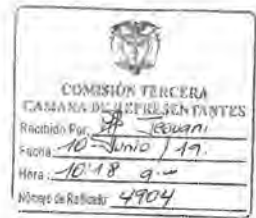 COMISIÓN TERCERA
CAMARA DE REPRESENTANTES
Recibido Por: Jeovani
Fecha: 10 - Junio / 19.
Hora: 10:18 a-
Número de Radicado: 4904